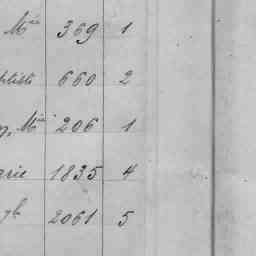 Mie 369 1
ptiste 660 2
Mie 206 1
arie 1835 4
ph 2061 5